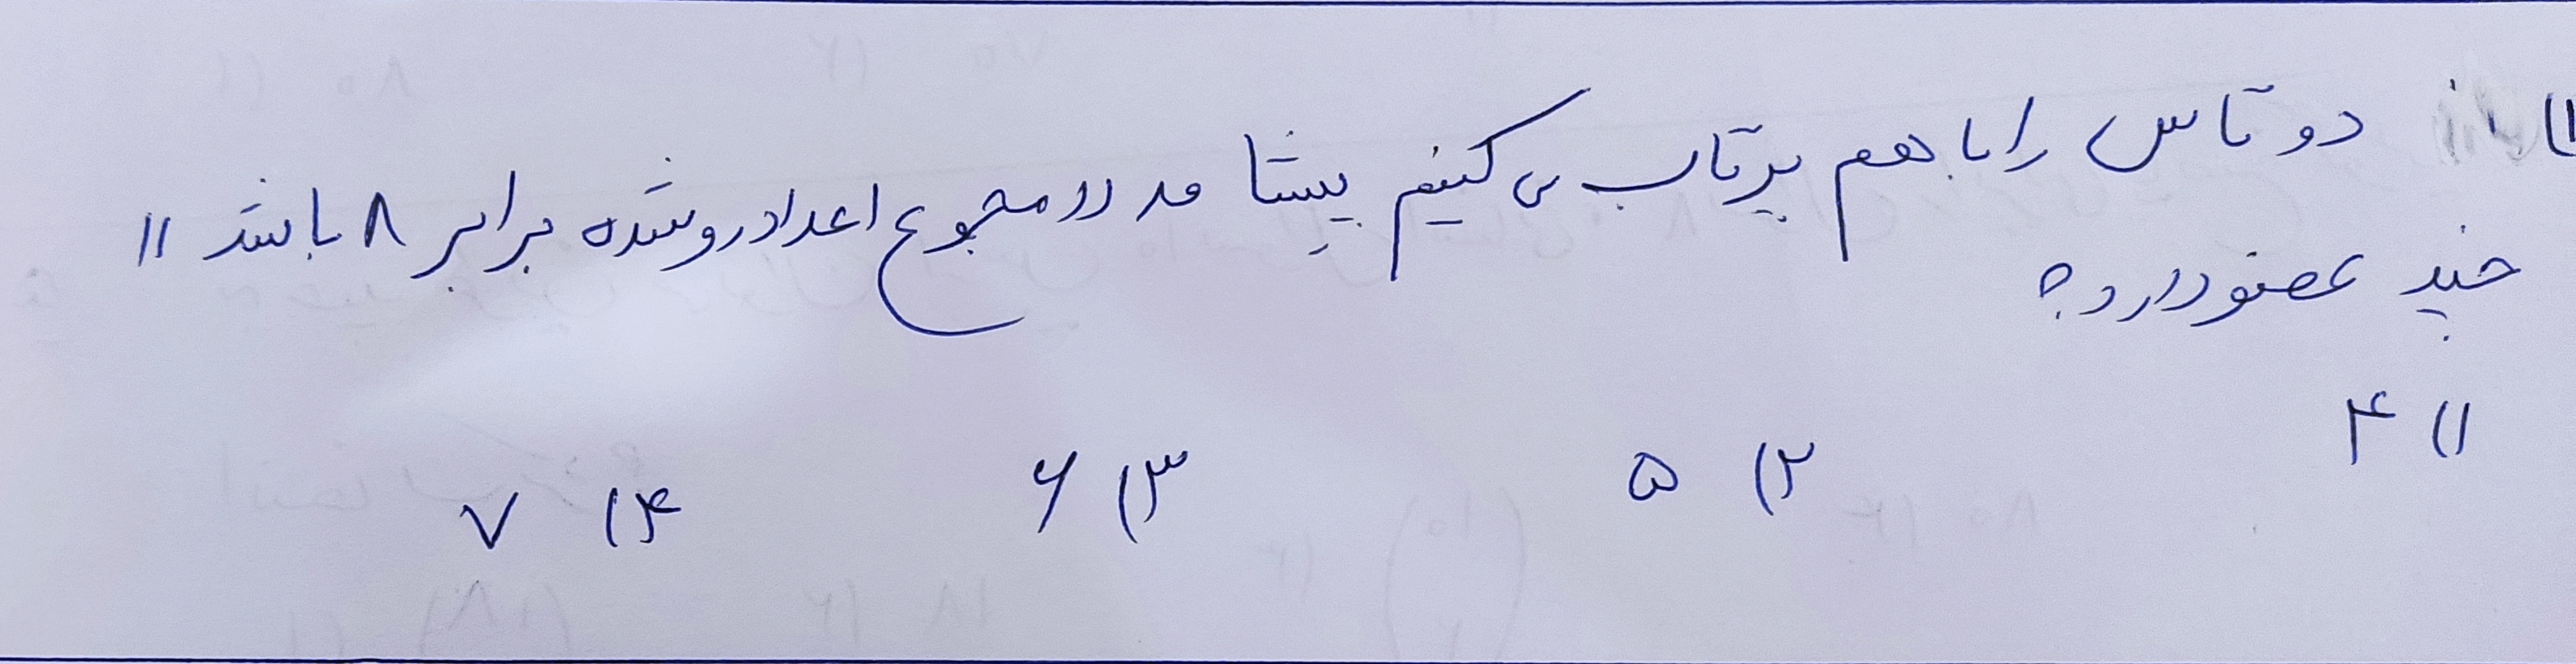 ۱۱) دو تاس را با هم پرتاب می کنیم پیشامد رر مجموع اعداد رو شده برابر ۸ باشد ۱۱
چند عضو دارد؟
۱) ۴
۲) ۵
۳) ۶
۴) ۷